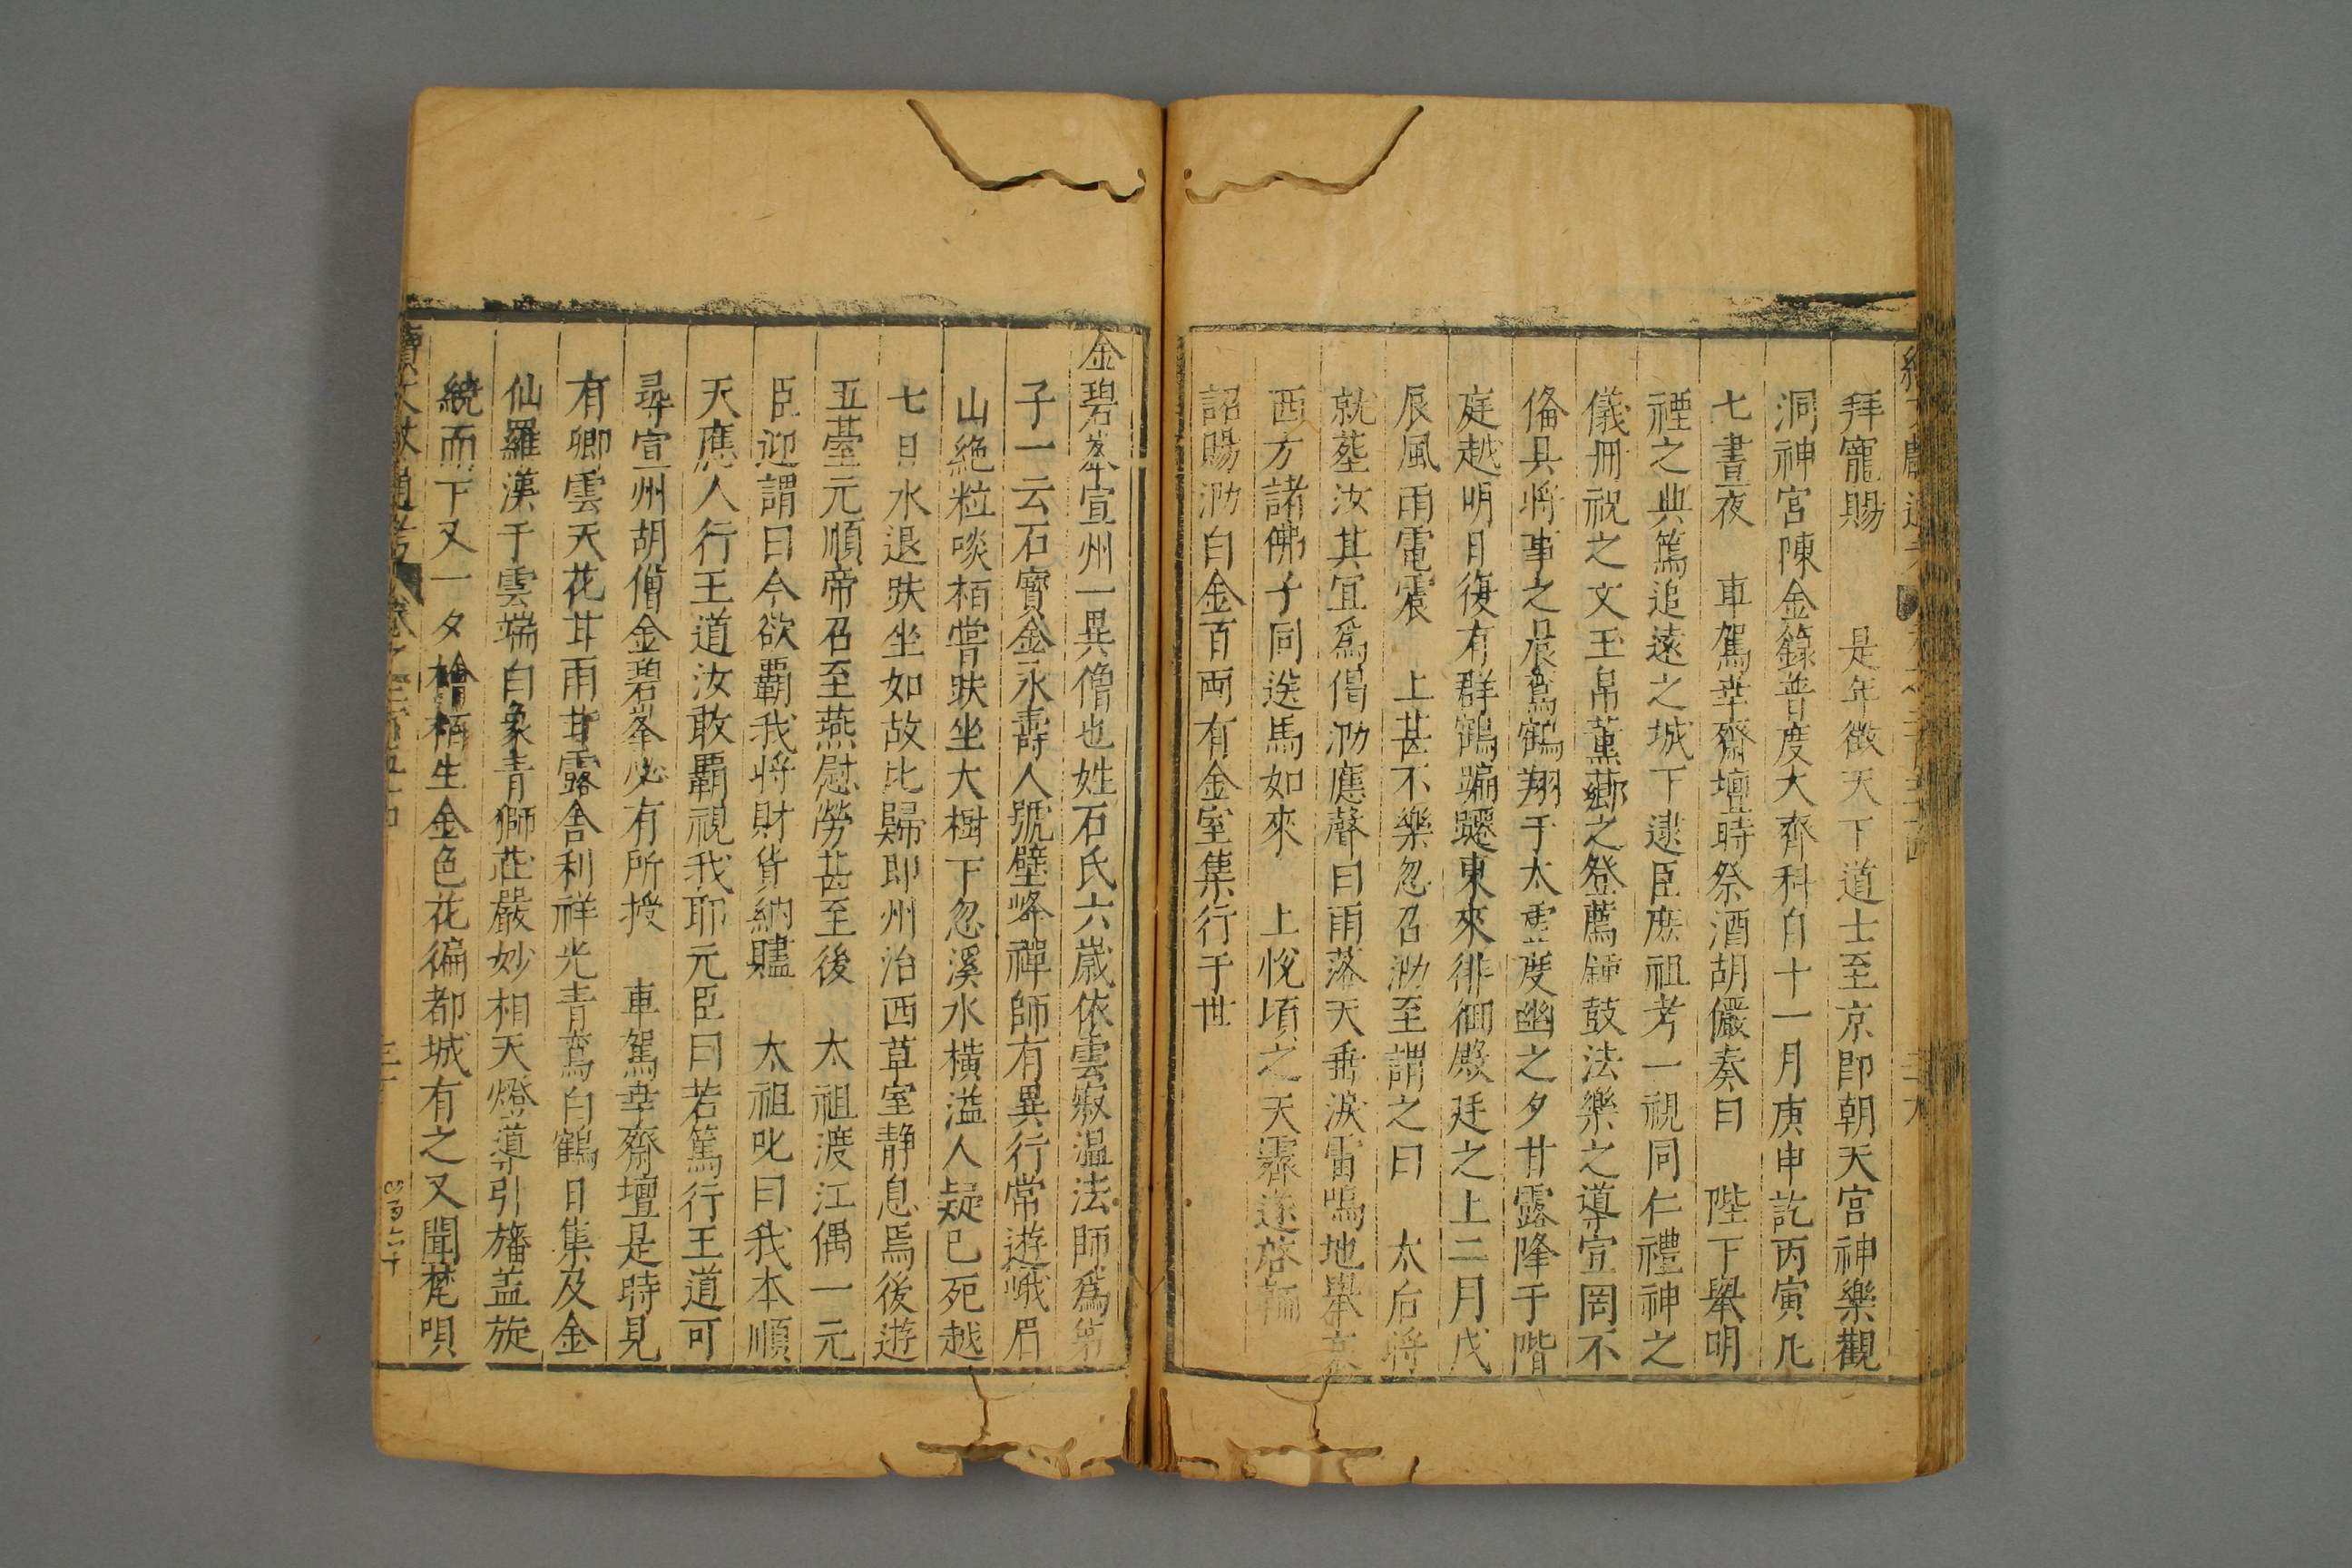 拜寵賜　是年徵天下道士至京即朝天宮神樂觀
洞神宮陳金籙普度大齊科自十一月庚申訖丙寅凡
七晝夜　車駕幸齋壇時祭酒胡儼奏曰　陛下舉明
禋之典篤追遠之城下逮臣庶祖考一視同仁禮神之
儀冊祝之文玉帛薰薌之登薦鐘鼓法樂之導宣罔不
俻具將事之晨鸞鶴翔于太霊度幽之夕甘露降于階
庭越明日復有群鶴蹁躚東來徘徊殿廷之上二月戊
辰風雨電震　上甚不樂忽召泐至謂之曰　太后將
就塟汝其宜爲偈泐應聲曰雨落天垂淚雷鳴地舉哀
西方諸佛子同送馬如來　上悅頃之天霽遂啓輀
詔賜泐白金百兩有金室集行于世
金碧峯宣州一異僧也姓石氏六歲依雲寂溫法師爲弟
子一云石寶金永壽人號壁峰禪師有異行常遊峨眉
山絶粒啖栢嘗趺坐大樹下忽溪水橫溢人疑已死越
七日水退趺坐如故比歸即州治西草室静息焉後遊
五薹元順帝召至燕慰勞甚至後　太祖渡江偶一元
臣迎謂曰今欲覇我將財貨納贐　太祖叱曰我本順
天應人行王道汝敢覇視我耶元臣曰若篤行王道可
尋宣州胡僧金碧峯必有所授　車駕幸齋壇是時見
有卿雲天花甘雨甘露舍利祥光青鸞白鶴日集及金
仙羅漢于雲端白象青獅莊嚴妙相天燈導引旛盖旋
繞而下又一夕檜栢生金色花徧都城有之又聞梵唄
續文献通考　卷之二百五十四　三十